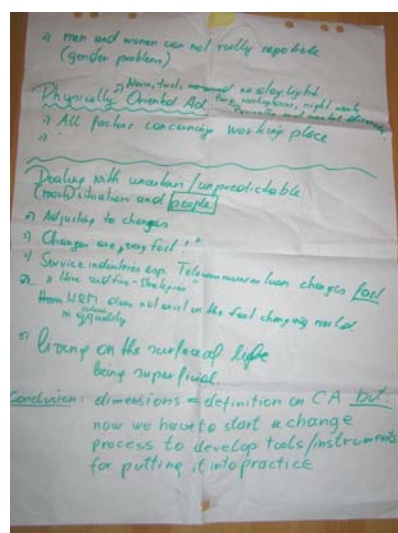 men and women can not really
(gender problem)
no daylight
Physically Oriented Ad. night work
and mental
All factors concerning working place
Dealing with uncertain/unpredictable
(work) situation and people
Adjusting to changes
Changes are very fast
Service industries esp. Telecommunication changes fast
Hire and fire-
HRM does not exist in the fast changing world.
living on the surface of life
being superficial
Conclusion: dimensions = definition on CA but
now we have to start a change
process to develop tools/instruments
for putting it into practice